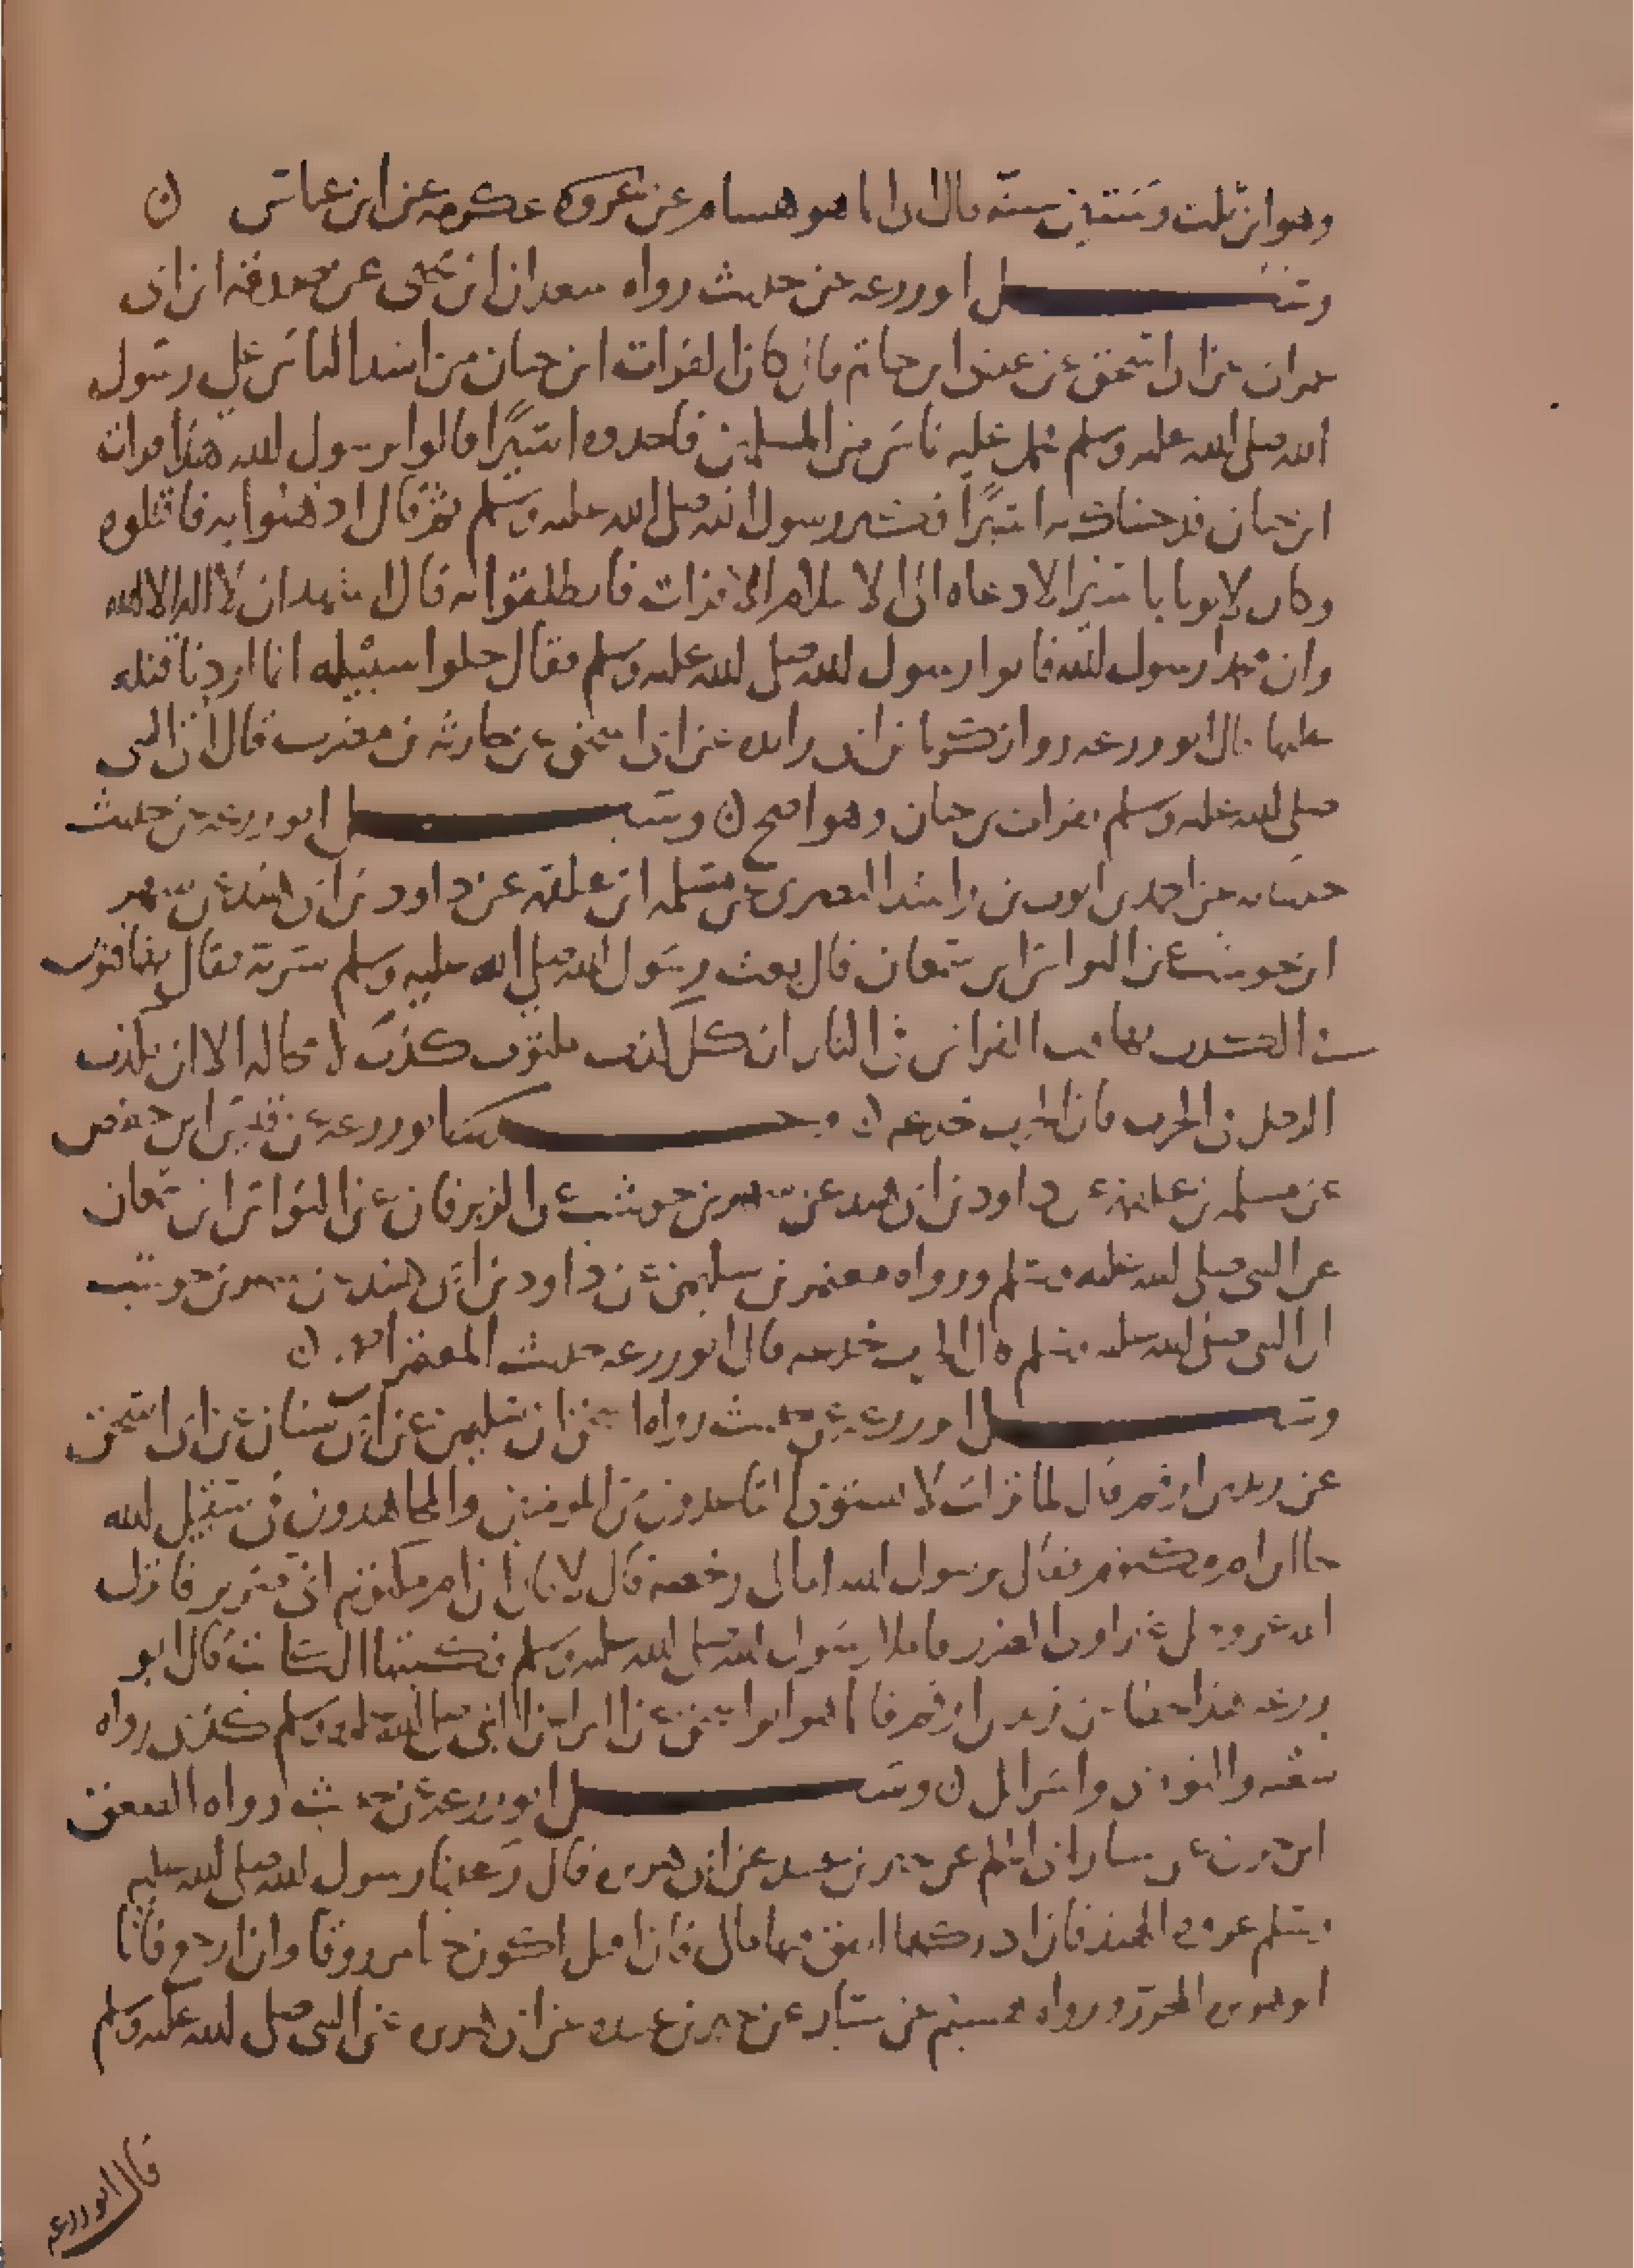 وهو ابن ثلث وستين سنة قال ابي انما هو هشام عن عكرمه عن ابن عباس ن
وسئل ابو زرعه عن حديث رواه سعدان ابن يحيى عن صدقه ابن ابي
عمران عن ابي اسحق عن عدي ابن حاتم قال كان الفرات ابن حيان من اشد الناس على رسول
الله صلى الله عليه وسلم فحمل عليه ناس من المسلمين فاخذوه اسيرا فقالوا يرسول الله هذا فرات
ابن حيان قد جيناك به اسيرا فسر رسول الله صلى الله عليه وسلم ثم قال اذهبوا به فاقتلوه
وكان لا يوتا باسير الا دعاه الى الاسلام الا فرات فانطلقوا به قال اشهد ان لا اله الا الله
وان محمدا رسول الله فاتوا رسول الله صلى الله عليه وسلم فقال خلوا سبيله انما اردنا قتله
عليها قال ابو زرعه روا زكريا بن ابي زايده عن ابي اسحق عن حارثه بن مضرب قال اتي النبي
صلى الله عليه وسلم بفرات بن حيان وهو اصح ن وسئل ابو زرعه عن حديث
حدثنا به عن احمد بن ايوب بن راشد البصري عن مسلمه ابن علقمه عن داود بن ابي هند عن شهر
ابن حوشب عن النواس ابن سمعان قال بعث رسول الله صلى الله عليه وسلم سرية فقال تهافتون
في الكذب تهافت الفراش في النار ان كل كذب مكتوب كذب لا محاله الا ان يكذب
الرجل في الحرب فان الحرب خدعه ن وحدثنا ابو زرعه عن قيس ابن حفص
عن مسلمه بن علقمه عن داود بن ابي هند عن شهر بن حوشب عن الزبرقان عن النواس ابن سمعان
عن النبي صلى الله عليه وسلم ورواه معتمر بن سليمن عن داود بن ابي هند عن شهر بن حوشب
ان النبي صلى الله عليه وسلم قال الحرب خدعه قال ابو زرعه حديث المعتمر اصح ن
وسئل ابو زرعه عن حديث رواه اسحق ابن سليمن عن ابي سنان عن ابي اسحق
عن زيد بن ارقم قال لما نزلت لا يستوي القاعدون من المومنين والمجاهدون في سبيل الله
جا ابن ام مكتوم فقال يرسول الله اما لي رخصه قال لا قال ابن ام مكتوم اني ضرير فانزل
الله عز وجل غير اولي الضرر فاملا رسول الله صلى الله عليه وسلم فكتبها الكاتب قال ابو
زرعه هذا خطا عن زيد بن ارقم قا انما هو ابو اسحق عن البرا عن النبي صلى الله عليه وسلم كذى رواه
شعبه والثوري واسرائل ن وسئل ابو زرعه عن حديث رواه الصعق
ابن حزن عن سيار ابي الحكم عن جبر بن عبيده عن ابي هريره قال وعدنا رسول الله صلى الله عليه
وسلم غزوه الهند فان ادركها انفق فيها مالي فان اقتل اكون حيا مرزوقا وان ارجع فانا
ابو هريره المحرر ورواه هشيم عن سيار عن جبر بن عبيده عن ابي هريره عن النبي صلى الله عليه وسلم
قال ابو زرعه